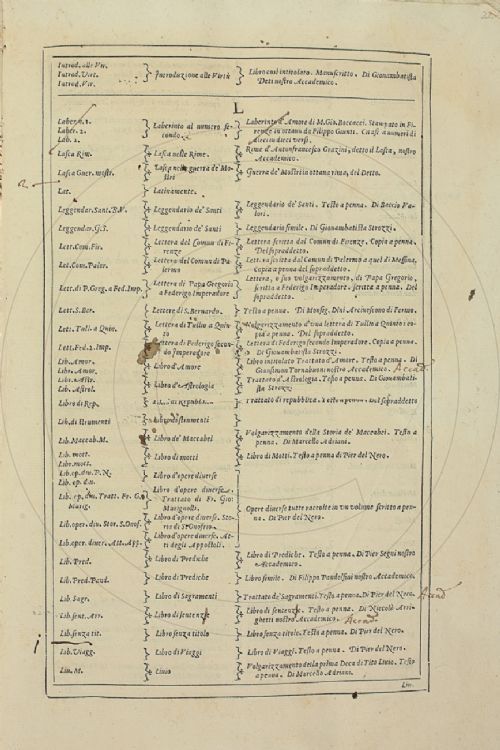 Introd. alle Vir.
Introd. Virt. } Introduzione alle Virtù } Libro così intitolato. Manuscritto. Di Giovambatista
Introd. Vir. Deti nostro Accademico.
L
Laber. 2. } Laberinto al numero se- } Laberinto d'Amore di M. Gio. Boccacci. Stampato in Fi-
Lab. 2. condo. renze in ottavo da Filippo Giunti. Citasi a numeri di
dieci in dieci versi.
Lasca Rim. } Lasca nelle Rime. } Rime d'Antonfrancesco Grazini, detto il Lasca, nostro
Accademico.
Lasca Guer. mostr. } Lasca nella guerra de' Mo- } Guerra de' Mostri in ottava rima, del Detto.
stri
Lat. } Latinamente.
Leggendar. Santi. B.V. } Leggendario de' Santi } Leggendario de' Santi. Testo a penna. Di Baccio Va-
lori.
Leggendar. G.S. } Leggendario de' Santi } Leggendario simile. Di Giovambatista Strozzi.
Lett. Com. Fir. } Lettera del Comun di Fi- } Lettera scritta dal Comun di Firenze. Copia a penna.
renze Del sopraddetto.
Lett. Com. Paler. } Lettera del Comun di Pa- } Lettera scritta dal Comun di Palermo a quel di Messina,
lermo Copia a penna del sopraddetto.
Lett. di P. Greg. a Fed. Imp. } Lettera di Papa Gregorio } Lettera, o suo volgarizzamento, di Papa Gregorio,
a Federigo Imperadore scritta a Federigo Imperadore. scritta a penna. Del
sopraddetto.
Lett. S. Ber. } Lettere di S. Bernardo. } Testo a penna. Di Monsig. Dini Arcivescovo di Fermo.
Lett. Tull. a Quin. } Lettera di Tullio a Quin- } Volgarizzamento d'una lettera di Tullio a Quinto: co-
to pia a penna. Del sopraddetto.
Lett. Fed. 2. Imp. } Lettera di Federigo secon- } Lettera di Federigo secondo Imperadore. Copia a penna.
do Imperadore Di Giovambatista Strozzi.
Lib. Amor. } Libro d'Amore } Libro intitolato Trattato d'Amore. Testo a penna. Di
Libr. Amor. Giansimon Tornabuoni nostro Accademico. Accad.
Lib. Astr. } Libro d'Astrologia } Trattato d'Astrologia. Testo a penna. Di Giovambati-
Lib. Astrol. sta Strozzi
Libro di Rep. } } Trattato di repubblica. Testo a penna. Del sopraddetto
Lib. di strumenti } Libro di strumenti
Lib. Maccab. M. } Libro de' Maccabei } Volgarizzamento della Storia de' Maccabei. Testo a
penna. Di Marcello Adriani.
Lib. mott. } Libro di motti } Libro di Motti. Testo a penna di Pier del Nero.
Libr. mott.
Lib. op. div. P. N. } Libro d'opere diverse
Lib. op. div.
Lib. op. div. Tratt. Fr. Gio. } Libro d'opere diverse.
Marig. Trattato di Fr. Gio: } Opere diverse tutte raccolte in un volume scritto a pen-
Marignolli. na. Di Pier del Nero.
Lib. oper. div. Stor. S. Onof. } Libro d'opere diverse. Sto-
ria di S. Onofrio
Lib. oper. diver. Att. App. } Libro d'opere diverse. At-
ti degli Appostoli.
Lib. Pred. } Libro di Prediche } Libro di Prediche. Testo a penna. Di Pier Segni nostro
Accademico.
Lib. Pred. Pand. } Libro di Prediche } Libro simile. Di Filippo Pandolfini nostro Accademico.
Lib. Sagr. } Libro di Sagramenti } Trattato de' Sagramenti. Testo a penna. Di Pier del Nero. Accad.
Lib. sent. Arr. } Libro di sentenze } Libro di sentenze. Testo a penna. Di Niccolò Arri-
ghetti nostro Accademico. Accad.
Lib. senza tit. } Libro senza titolo } Libro senza titolo. Testo a penna. Di Pier del Nero.
Lib. Viagg. } Libro di Viaggi } Libro di Viaggi. Testo a penna. Di Pier del Nero.
Liv. M. } Livio } Volgarizzamento della prima Deca di Tito Livio. Testo
a penna. Di Marcello Adriani.
Liv.